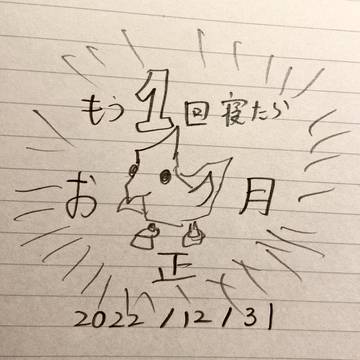 もう1回寝たら
お正月
2022/12/31